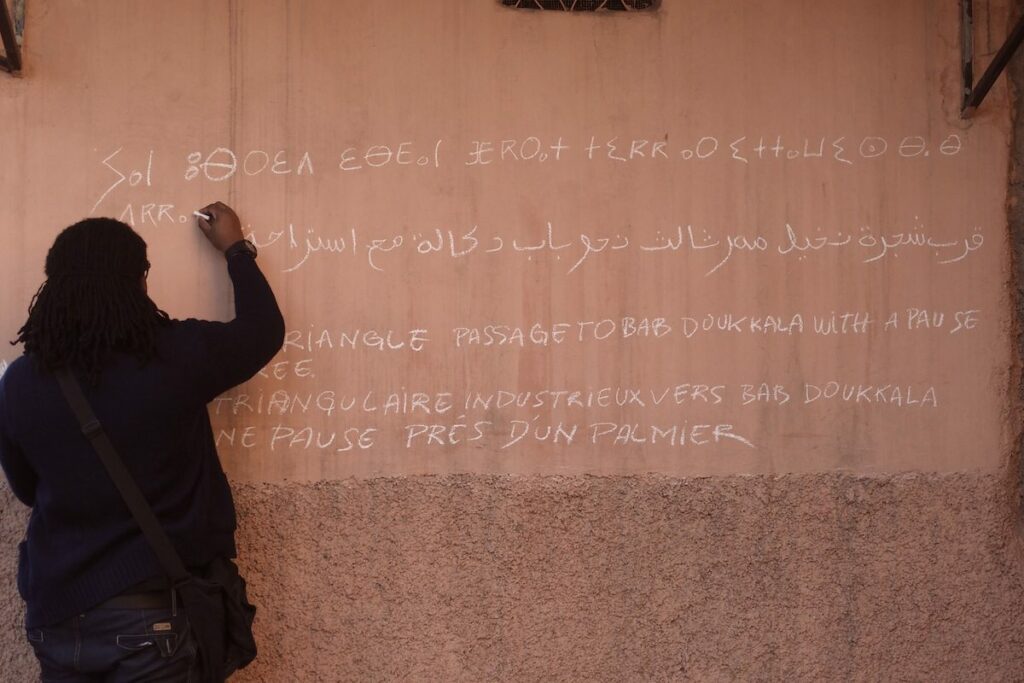 ⵢⴰⵏ ⵓⴱⵔⵉⴷ ⴰⵔ ⵉⵜⵜⴰⵡⵉ ⵙ ⴱⴰⴱ
ⴷⴽⴽⴰ
قرب شجرة نخيل ممر ثالث نحو باب دكالة مع استراحة
RIANGLE PASSAGE TO BAB DOUKKALA WITH A PAUSE
REE.
TRIANGULAIRE INDUSTRIEUX VERS BAB DOUKKALA
NE PAUSE PRÉS D'UN PALMIER